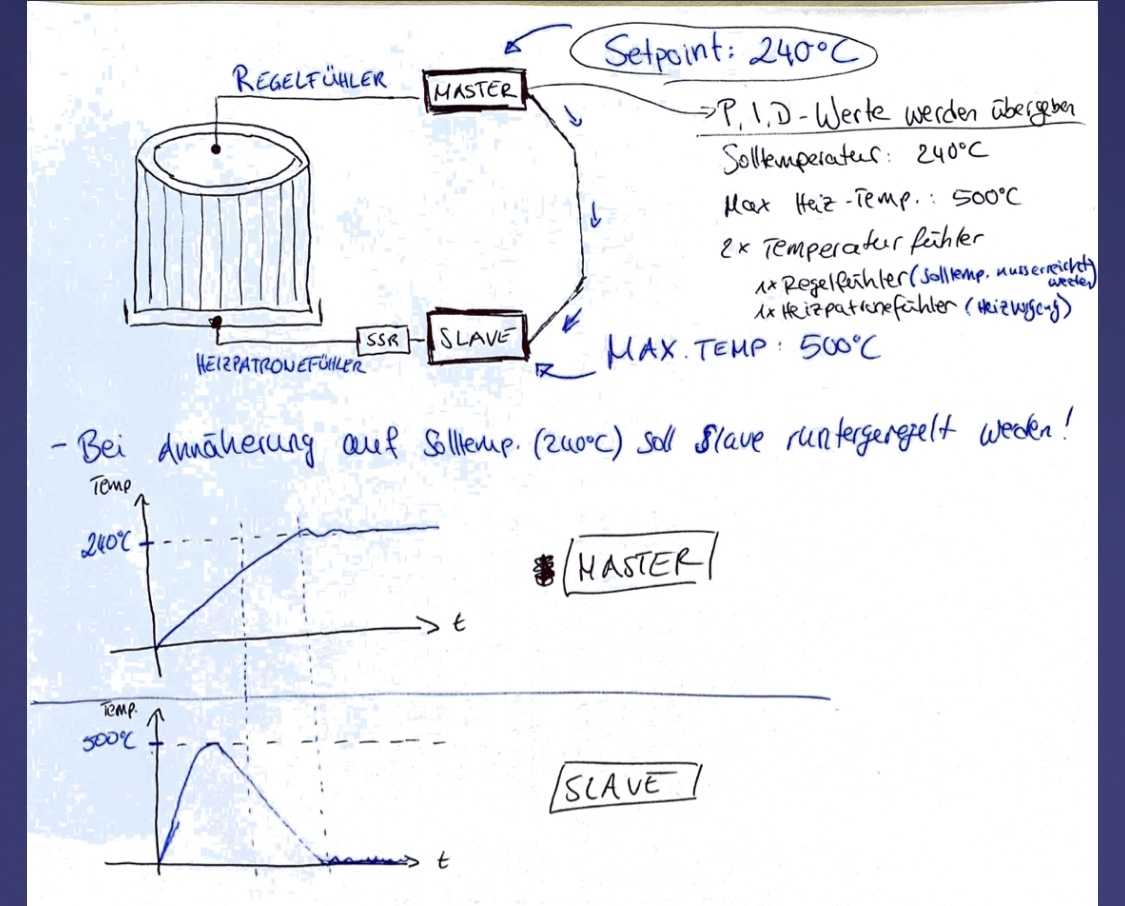 Setpoint: 240°C
REGELFÜHLER
MASTER
P, I, D - Werte werden übergeben
Solltemperatur: 240°C
Max Heiz-Temp.: 500°C
2x Temperaturfühler
1x Regelfühler (Solltemp. muss erreicht werden)
1x Heizpatronefühler
SSR
SLAVE
MAX. TEMP: 500°C
HEIZPATRONEFÜHLER
- Bei Annäherung auf Solltemp. (240°C) soll Slave runtergeregelt werden!
Temp
240°C
MASTER
t
Temp.
500°C
SLAVE
t